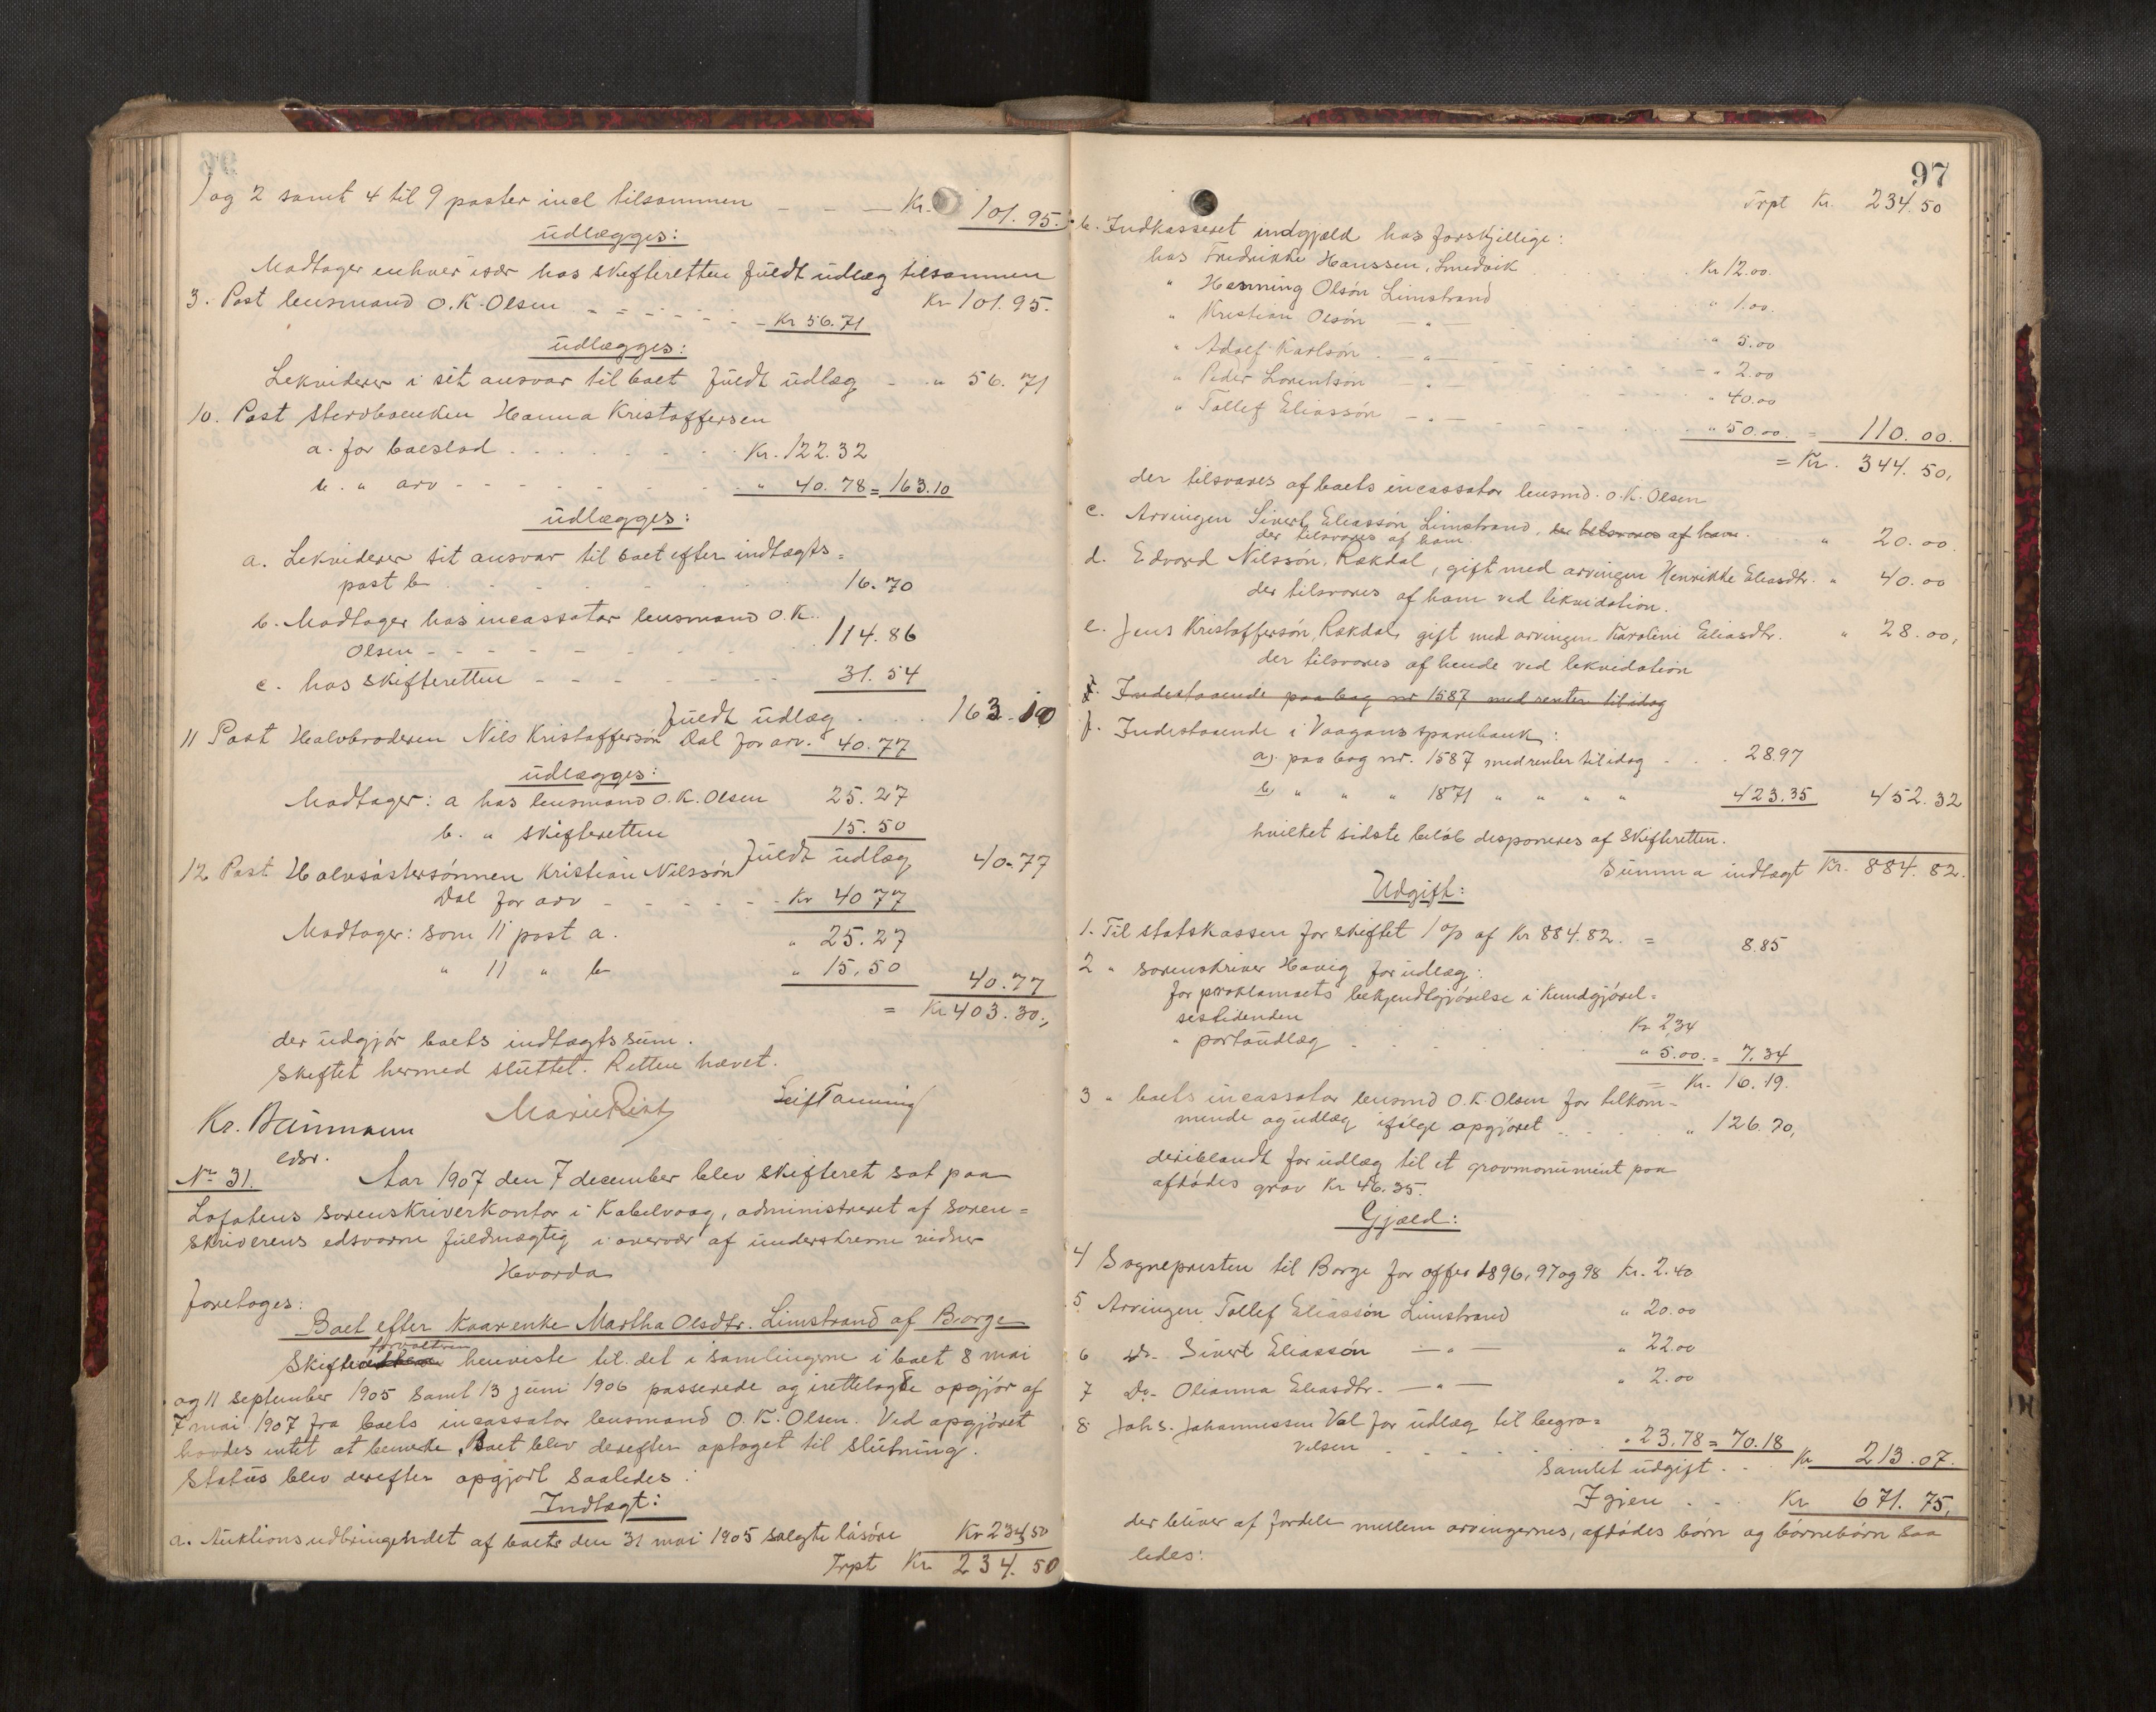 1 og 2 samt 4 til 9 poster incl tilsammen - - - Kr. 101.95.
udlægges:
Modtager enhver især hos skifteretten fuldt udlæg tilsammen
Kr 101.95.
3. Post lensmand O. K. Olsen - - - - - - Kr 56.71
udlægges:
Lekviderer i sit ansvar til boet fuldt udlæg - " 56.71
10. Post stervboenken Hanna Kristoffersen
a. for boeslod . . . . . . . Kr. 122.32
b. " arv - - - - - - - " 40.78 = 163.10
udlægges:
a. Lekviderer sit ansvar til boet efter indtægts=
post b - - - - - - 16.70
b. Modtager hos incassator lensmand O. K.
Olsen - - - - - - - - 114.86
c. hos skifteretten - - - - - - - 31.54
fuldt udlæg . . . 163.10
11 Post Halvbroderen Nils Kristoffersøn Dal for arv. 40.77
udlægges:
Modtager: a hos lensmand O. K. Olsen 25.27
b. " skifteretten 15.50
fuldt udlæg 40.77
12 Post Halvsøstersønnen Kristian Nilssøn
Dal for arv - - - - - - Kr 40 77
Modtager: som 11 post a. " 25.27
" 11 " b " 15.50 40.77
= Kr 403.30.,
der udgjør boets indtægtssum.
Skiftet hermed sluttet. Retten hævet.
Kr. Baumann
edsv.
No 31. Aar 1907 den 7 december blev skifteret sat paa
Lofotens sorenskriverkontor i Kabelvaag, administreret af soren=
skriverens edsvorne fuldmægtig i overvær af underskrevne vidner
Hvorda
foretoges:
Boet efter kaarenke Martha Olsdtr. Limstrand af Borge
forvalteren
Skifte henviste til det i samlingerne i boet 8 mai
og 11 september 1905 samt 13 juni 1906 passerede og irettelagde opgjør af
7 mai 1907 fra boets incassator lensmand O. K. Olsen. Ved opgjøret
havdes intet at bemerke. Boet blev derefter optaget til slutning.
Status blev derefter opgjort saaledes:
Indtægt:
a. Auktionsudbringendet af boets den 31 mai 1905 solgte løsøre Kr 234.50
Trpt Kr 234.50
97
Trpt Kr. 234.50
b. Indkasseret indgjæld hos forskjellige:
hos Fredrikke Hanssen, Smedvik Kr 12.00.
" Henning Olsøn Limstrand " 1.00.
" Kristian Olsøn - " - " 5.00
" Adolf Karlsøn . - " - " 2.00
" Peder Lorentsøn - " - " 40.00
" Tollef Eliassøn - " - " 50.00. = 110.00.
= Kr. 344.50,
der tilsvares af boets incassator lensmd. O. K. Olsen
c. Arvingen Sivert Eliassøn Limstrand, der tilsvares af ham. " 20.00.
der tilsvares af ham
d. Edvard Nilssøn, Rækdal, gift med arvingen Henrikke Eliasdtr. " 40.00
der tilsvares af ham ved likvidation.
e. Jens Kristoffersøn, Rækdal, gift med arvingen Karoline Eliasdtr. " 28.00,
der tilsvares af hende ved lekvidation
f. Indestaaende paa bog nr 1587 med renter til idag
f. Indestaaende i Vaagans sparebank:
a). paa bog nr. 1587 med renter til idag . . . 28.97
b) " " " 1871 " " " " 423.35 452.32
hvilket sidste beløb disponeres af Skifteretten.
Summa indtægt Kr. 884.82.
Udgift:
1. Til statskassen for skiftet 1 % af Kr 884.82. = 8.85
2 " sorenskriver Havig for udlæg:
for proklamaets bekjendtgjørelse i Kundgjørel=
sestidenden Kr 2.34
" portoudlæg . . . . . " 5.00. = 7.34
= Kr. 16.19.
3 " boets incassator lensmd O. K. Olsen for tilkom-
mende og udlæg ifølge opgjøret . . . . . " 126.70,
deriblandt for udlæg til et gravmonument paa
afdødes grav Kr 46.35.
Gjæld:
4 Sognepresten til Borge for offer 1896, 97 og 98 Kr. 2.40
5. Arvingen Tollef Eliassøn Limstrand " 20.00
6 Do- Sivert Eliassøn - " - " 22.00
7 Do- Olianna Eliasdtr. - " - " 2.00
8 Johs. Johannessen Val for udlæg til begra=
velsen . . - - - - . 23.78 = 70.18
Samlet udgift . . . Kr 213.07.
Igjen . . . Kr 671.75,
der bliver at fordele mellem arvingernes, afdødes børn og børnebørn saa
ledes: